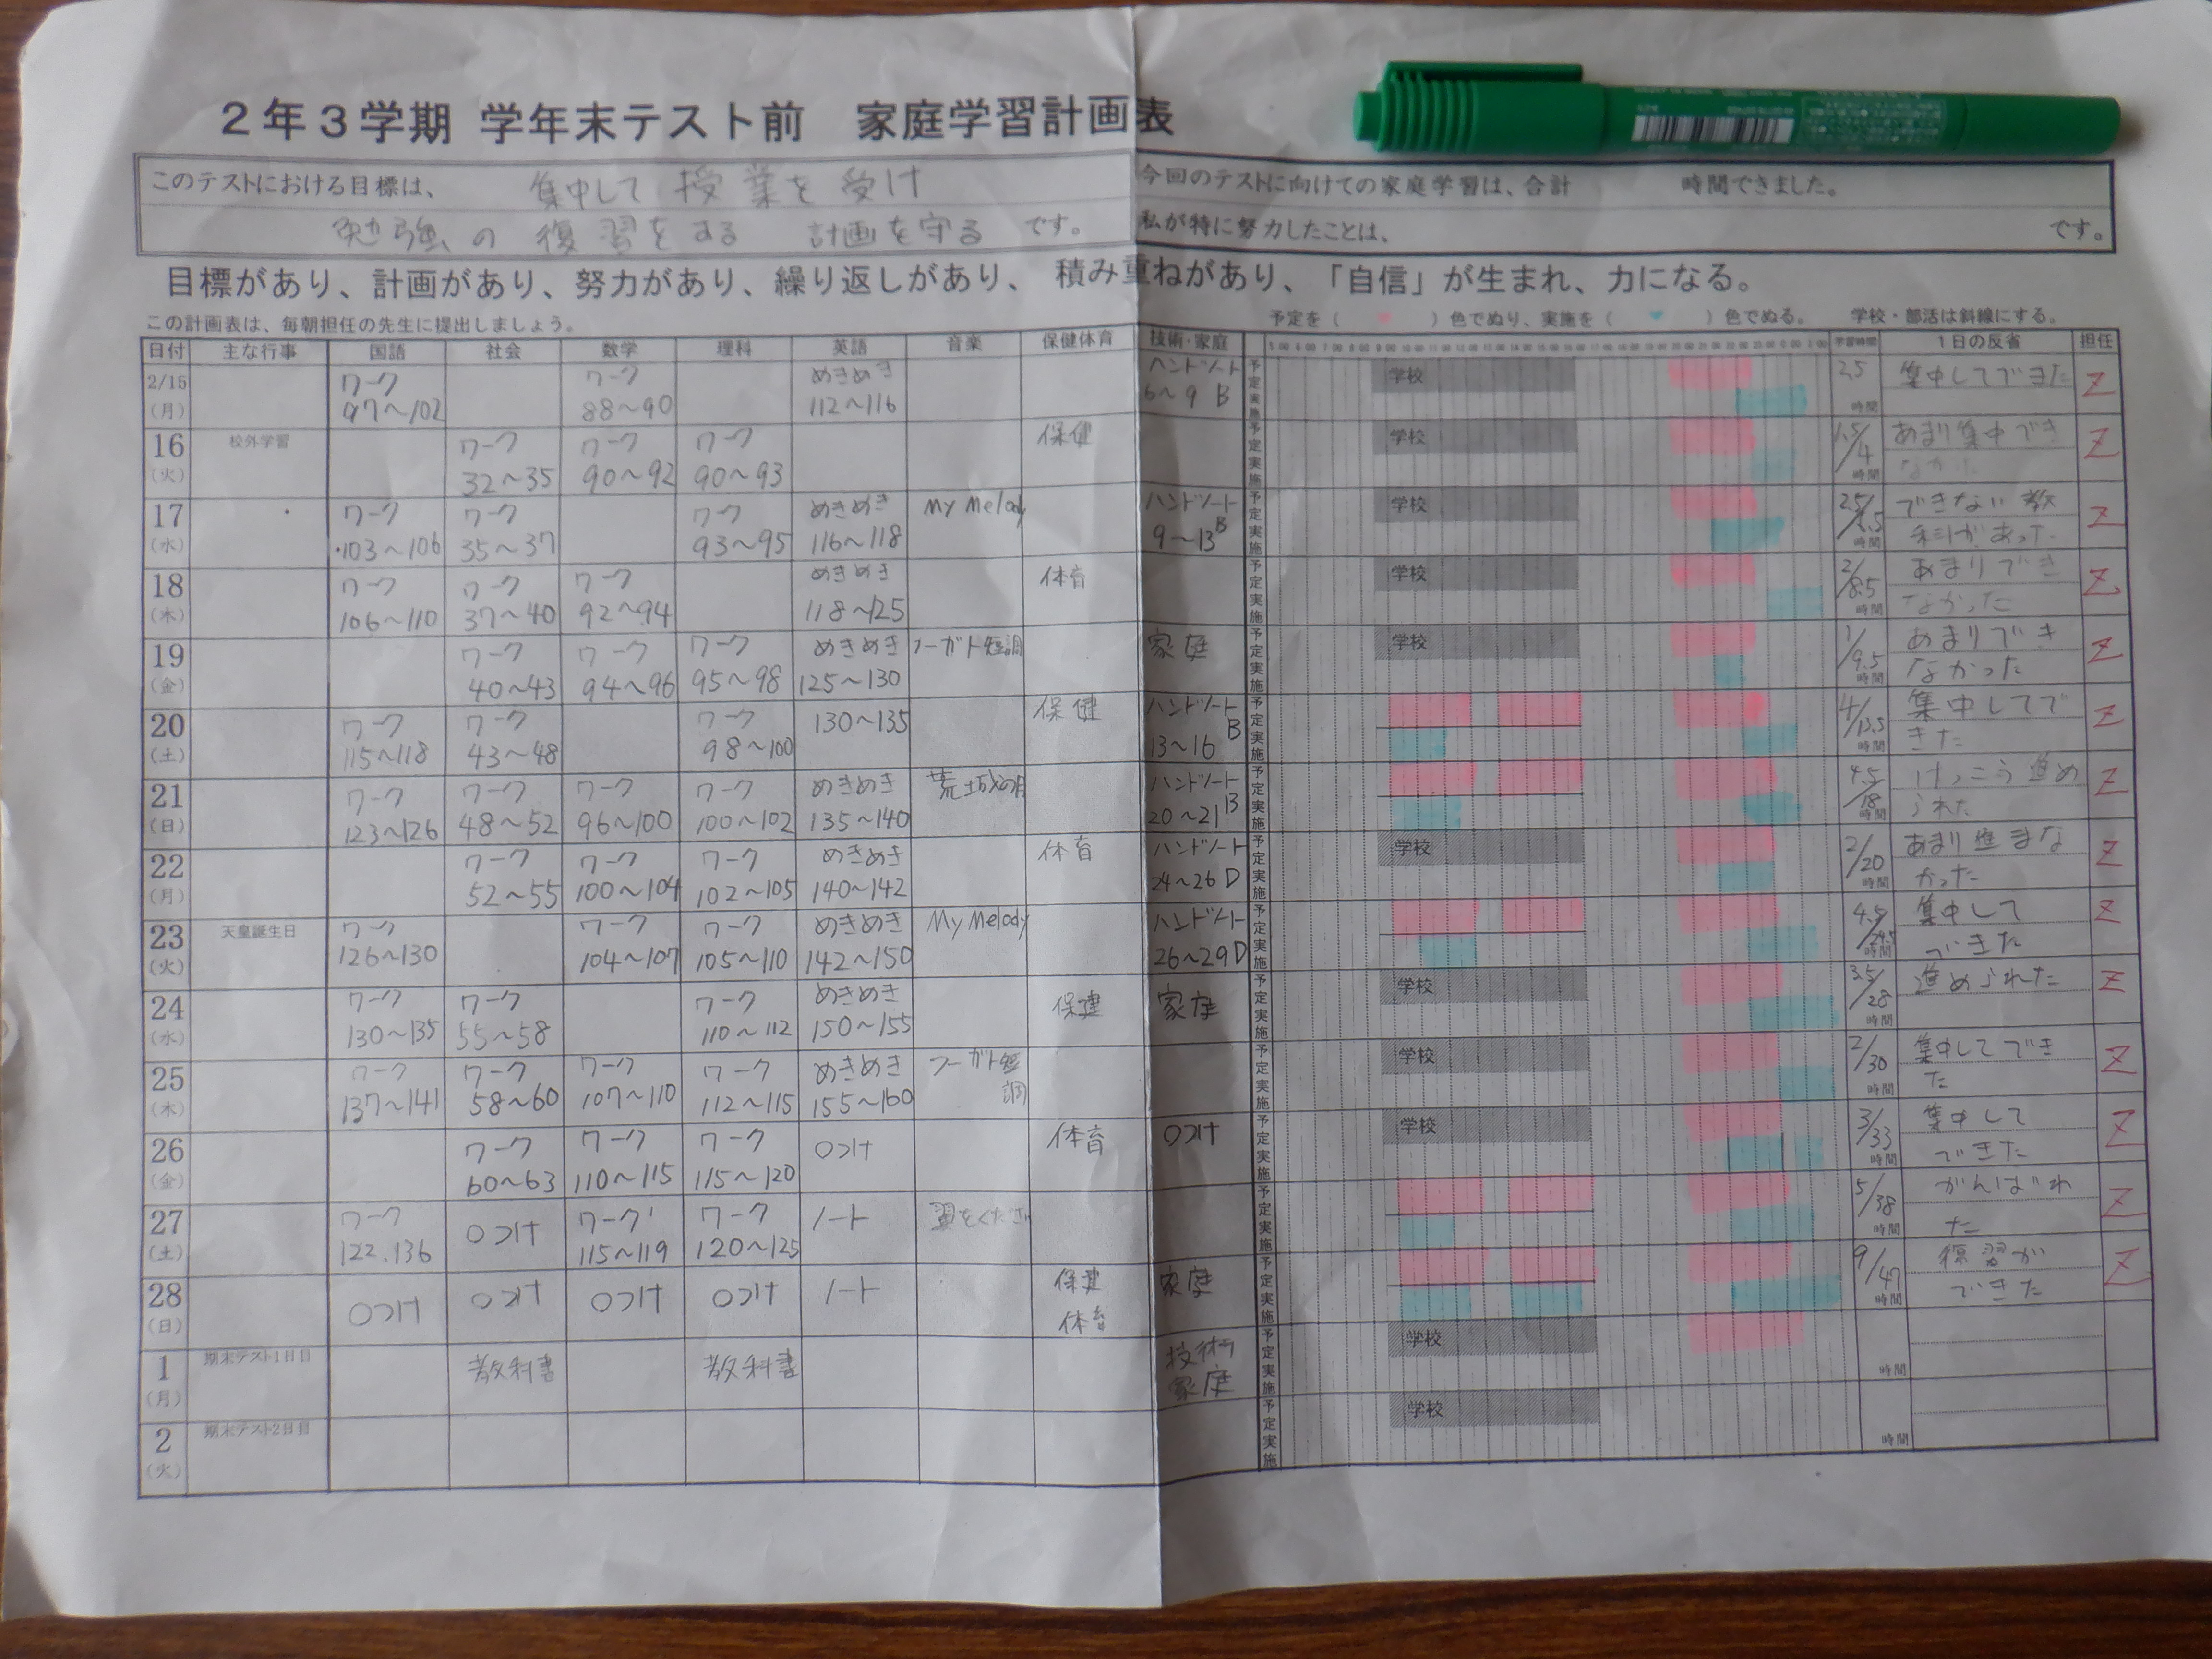 2年3学期 学年末テスト前 家庭学習計画表
このテストにおける目標は、 集中して 授業を 受け
勉強の 復習をする 計画を守る です。
今回のテストに向けての家庭学習は、合計 時間できました。
私が特に努力したことは、 です。
目標があり、計画があり、努力があり、繰り返しがあり、 積み重ねがあり、「自信」が生まれ、力になる。
この計画表は、毎朝担任の先生に提出しましょう。
予定を( )色でぬり、実施を( )色でぬる。 学校・部活は斜線にする。
日付 主な行事 国語 社会 数学 理科 英語 音楽 保健体育 技術・家庭 学習時間 1日の反省 担任
2/15 ワーク ワーク めきめき ハンドノート 予定 学校 2.5 集中してできた Z
(月) 97~102 88~90 112~116 6~9 B 実施 時間
16 校外学習 ワーク ワーク ワーク 保健 予定 学校 1.5/4 あまり集中でき Z
(火) 32~35 90~92 90~93 実施 時間 なかった
17 ワーク ワーク ワーク めきめき My Melody ハンドノート 予定 学校 2.5/6.5 できない教 Z
(水) 103~106 35~37 93~95 116~118 9~13 B 実施 時間 科があった
18 ワーク ワーク ワーク めきめき 体育 予定 学校 2/8.5 あまりでき Z
(木) 106~110 37~40 92~94 118~125 実施 時間 なかった
19 ワーク ワーク ワーク めきめき フーガト短調 家庭 予定 学校 1/9.5 あまりでき Z
(金) 40~43 94~96 95~98 125~130 実施 時間 なかった
20 ワーク ワーク ワーク 130~135 保健 ハンドノート 予定 4/13.5 集中してで Z
(土) 115~118 43~48 98~100 13~16 B 実施 時間 きた
21 ワーク ワーク ワーク ワーク めきめき 荒城の月 ハンドノート 予定 4.5/18 けっこう進め Z
(日) 123~126 48~52 96~100 100~102 135~140 20~21 B 実施 時間 られた
22 ワーク ワーク ワーク めきめき 体育 ハンドノート 予定 学校 2/20 あまり進まな Z
(月) 52~55 100~104 102~105 140~142 24~26 D 実施 時間 かった
23 天皇誕生日 ワーク ワーク ワーク めきめき My Melody ハンドノート 予定 4.5/24.5 集中して Z
(火) 126~130 104~107 105~110 142~150 26~29 D 実施 時間 できた
24 ワーク ワーク ワーク めきめき 保健 家庭 予定 学校 3.5/28 進められた Z
(水) 130~135 55~58 110~112 150~155 実施 時間
25 ワーク ワーク ワーク ワーク めきめき フーガト短調 予定 学校 2/30 集中してでき Z
(木) 137~141 58~60 107~110 112~115 155~160 実施 時間 た
26 ワーク ワーク ワーク ○つけ 体育 ○つけ 予定 学校 3/33 集中して Z
(金) 60~63 110~115 115~120 実施 時間 できた
27 ワーク ○つけ ワーク ワーク ノート 翼をください 予定 5/38 がんばれ Z
(土) 122.136 115~119 120~125 実施 時間 た
28 ○つけ ○つけ ○つけ ○つけ ノート 保健 家庭 予定 9/47 復習が Z
(日) 体育 実施 時間 できた
1 期末テスト1日目 教科書 教科書 技術 予定 学校
(月) 家庭 実施 時間
2 期末テスト2日目 予定 学校
(火) 実施 時間